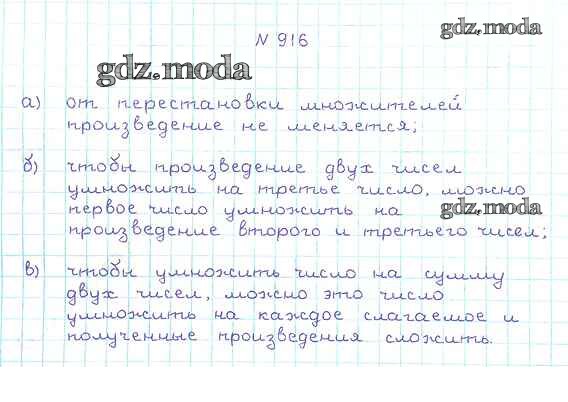 N 916
gdz.moda
gdz.moda
а) от перестановки множителей
произведение не меняется;
б) чтобы произведение двух чисел
умножить на третье число, можно
первое число умножить на
gdz.moda
произведение второго и третьего чисел;
в) чтобы умножить число на сумму
двух чисел, можно это число
умножить на каждое слагаемое и
полученные произведения сложить.